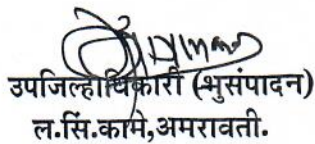 उपजिल्हाधिकारी (भुसंपादन)
ल.सिं.कामे,अमरावती.